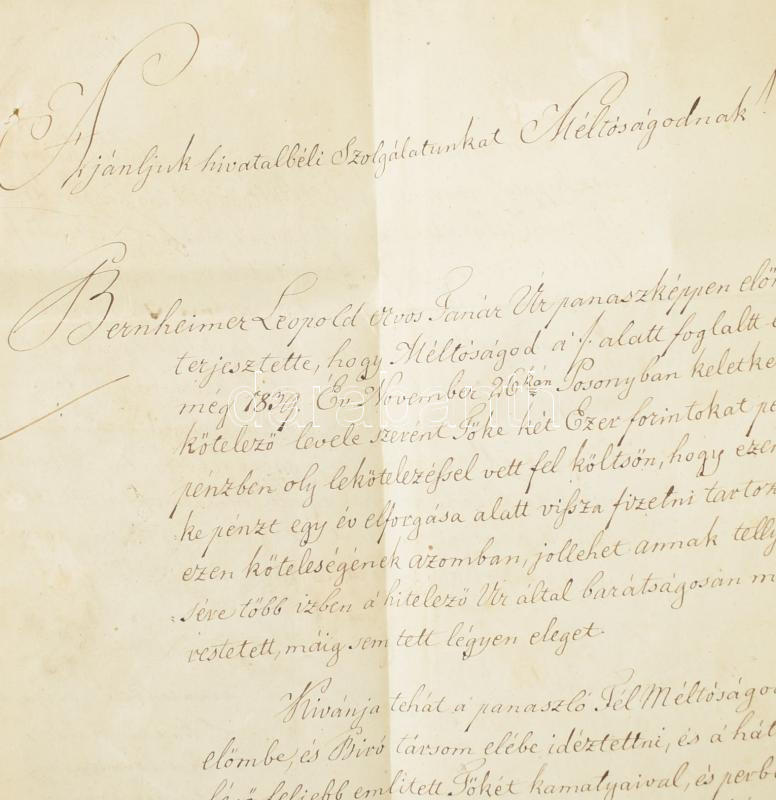 Ajánljuk hivatalbéli Szolgálatunkat Méltóságodnak!
Bernheimer Leopold orvos Tanár Úr panaszképpen elő
terjesztette, hogy Méltóságod a ·/. alatt foglaltt
még 1839. Év November 26kán Posonyban keletke
kötelező levele szerént Tőke két Ezer forintokat pe
pénzben oly lekötelezéssel vett fel költsön, hogy ezen
ke pénzt egy év elforgása alatt vissza fizetni tartoz
ezen köteleségének azomban, jollehet annak telly
séve több izben á hitelező Úr által barátságosán m
restetett, máig sem tett légyen eleget.
Kivánja tehát á panaszló Fél Méltóságo
előmbe, és Biró társom elébe idéztettni, és á hát
feljebb emlitett Tőkét kamatyaival, és perb
darabanth